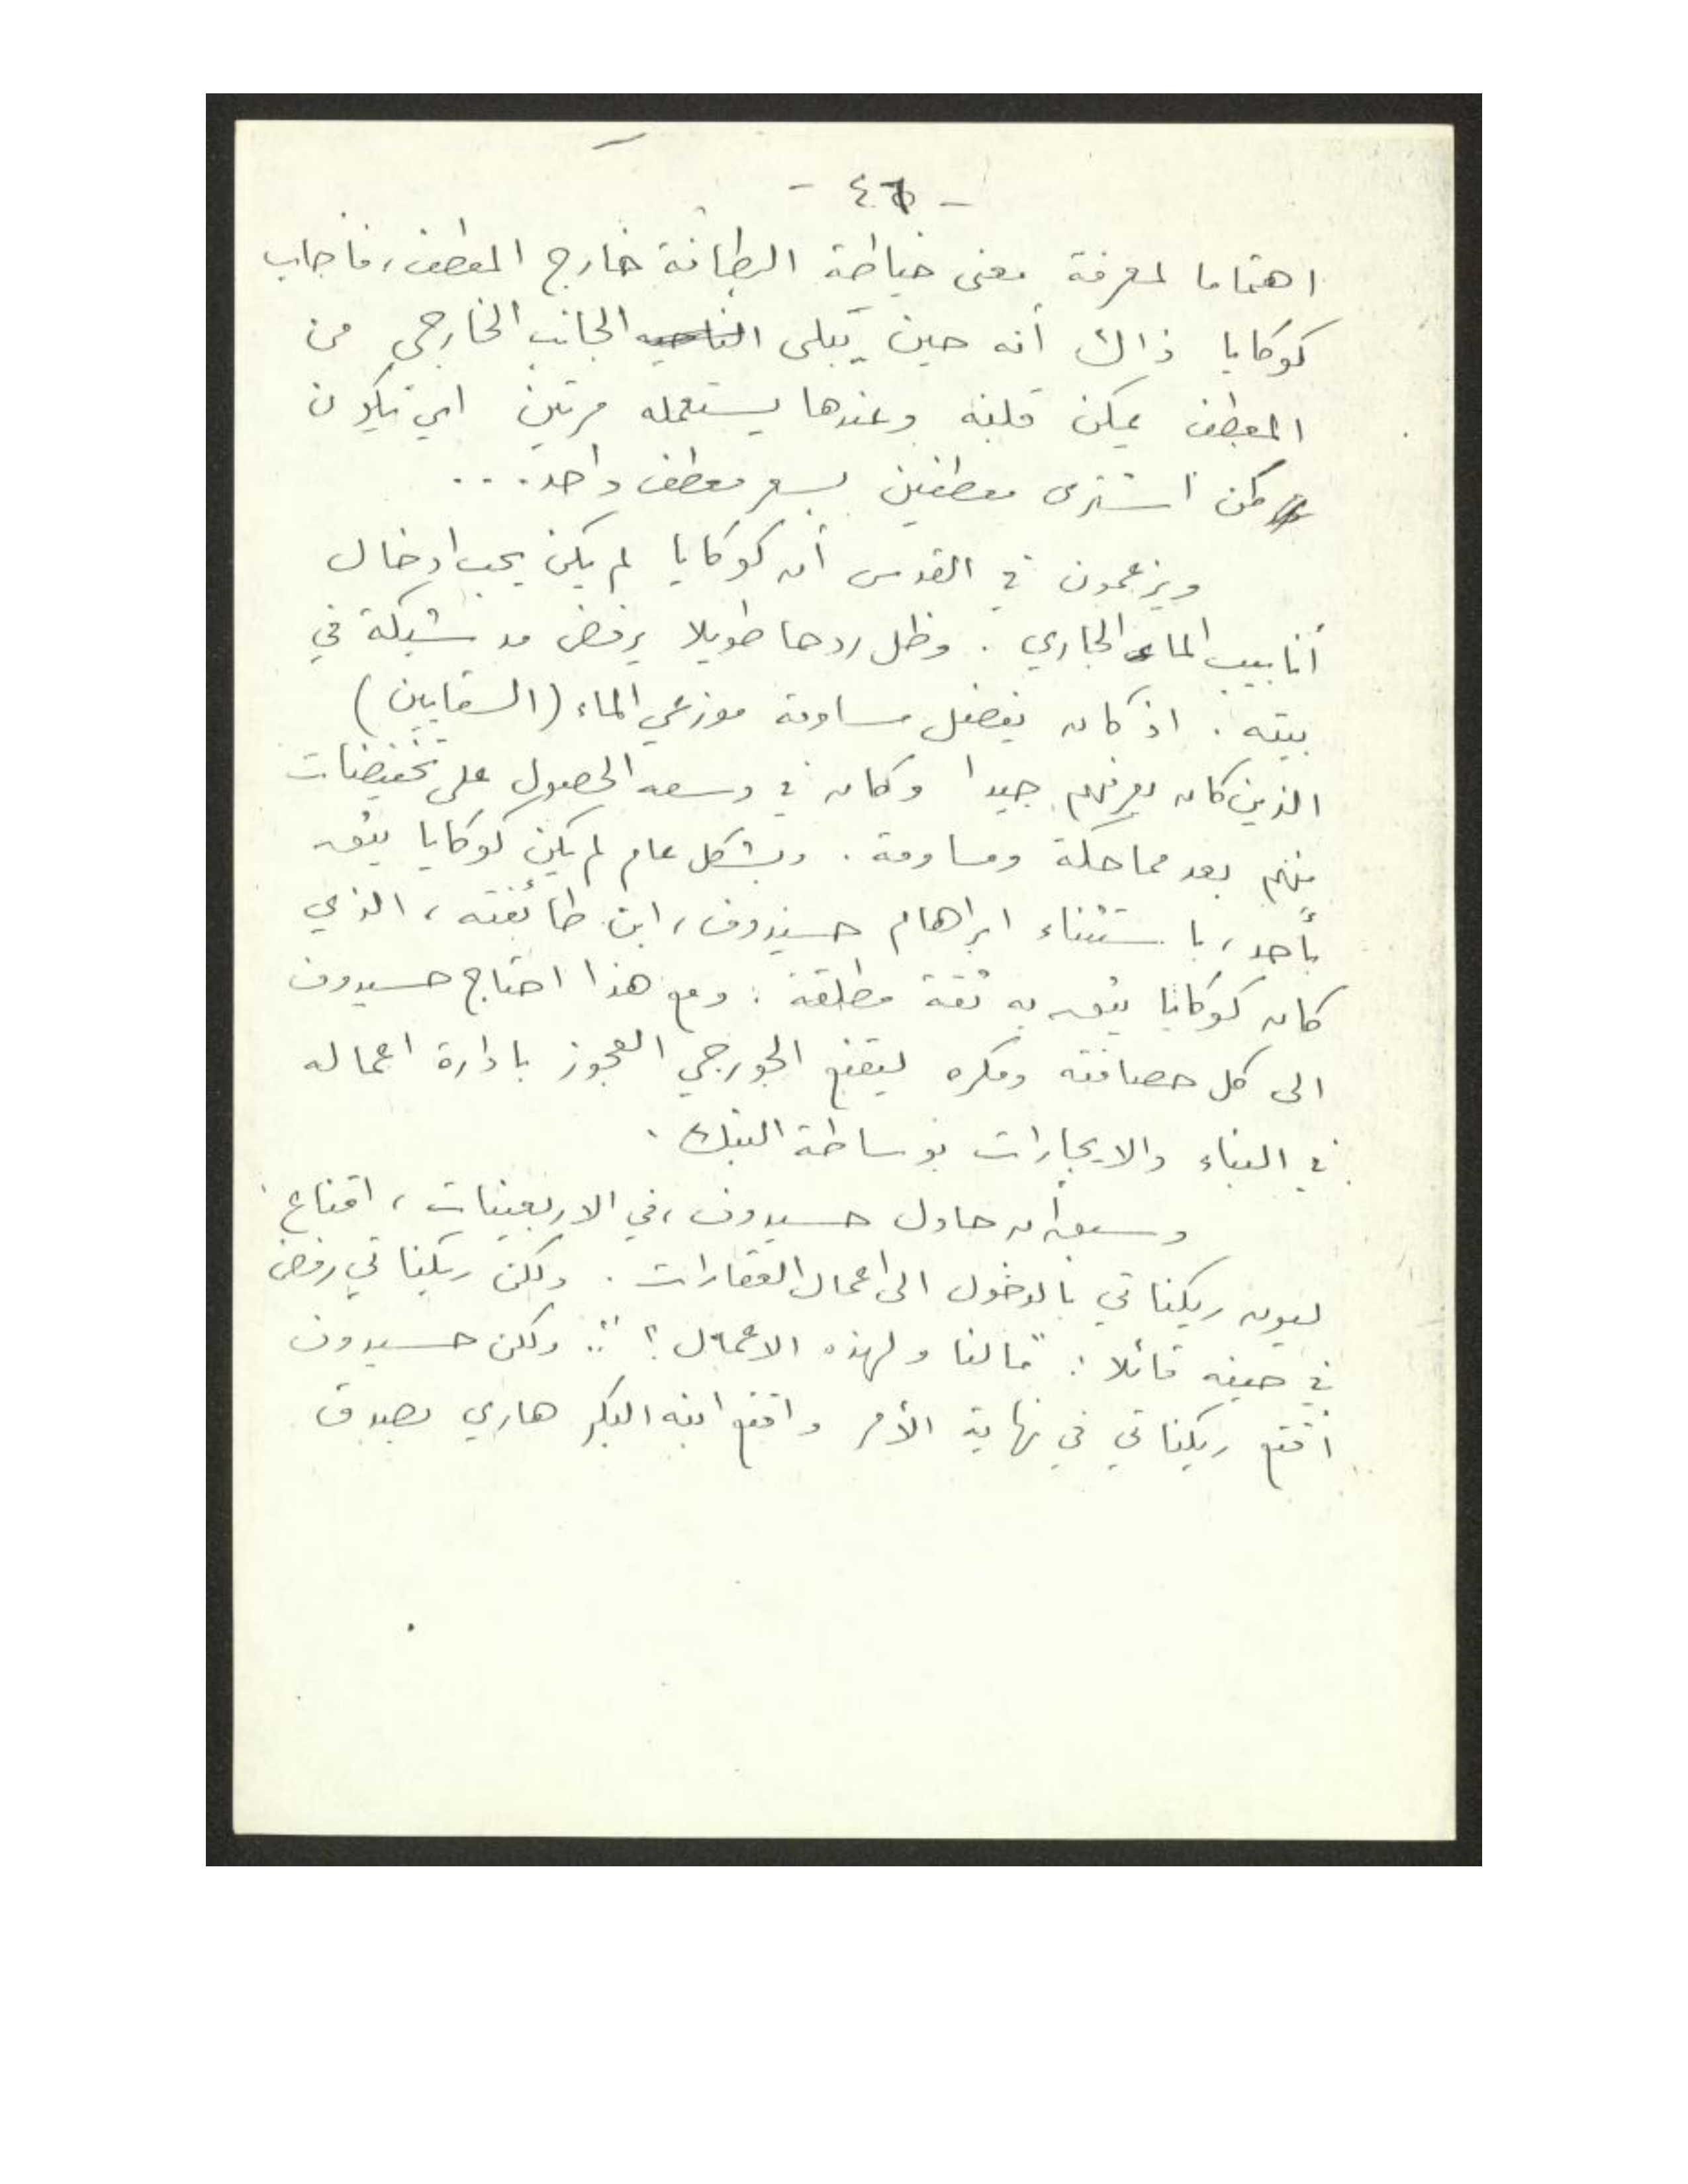 - ٤٦ -
اهتماما لمعرفة معنى خياطة البطانة خارج المعطف، فأجاب
كوكايا ذاك أنه حين يبلى الناحية الجانب الخارجي من
المعطف يمكن قلبه وعندها يستعمله مرتين اي يكون
كمن اشترى معطفين بسعر معطف واحد...
ويزعمون في القدس أن كوكايا لم يكن يحب ادخال
أنابيب الماء الجاري. وظل ردحا طويلا يرفض مد شبكة في
بيته. اذ كان يفضل مساومة موزعي الماء (السقايين)
الذين كان يعرفهم جيدا وكان في وسعه الحصول على تخفيضات
منهم بعد مماحكة ومساومة. وبشكل عام لم يكن كوكايا يثق
بأحد، باستثناء ابراهام حسيدوف، ابن طائفته، الذي
كان كوكايا يثق به ثقة مطلقة. ومع هذا احتاج حسيدوف
الى كل حصافته ومكره ليقنع الجورجي العجوز بادارة اعماله
في البناء والايجارات بوساطة البنك.
وسبق أن حاول حسيدوف، في الاربعينات، اقناع
ليون ريكناتي بالدخول الى اعمال العقارات. ولكن ريكناتي رفض
في حينه قائلا: "مالنا ولهذه الاعمال؟".. ولكن حسيدوف
أقنع ريكناتي في نهاية الأمر واقنع ابنه البكر هاري بصدق